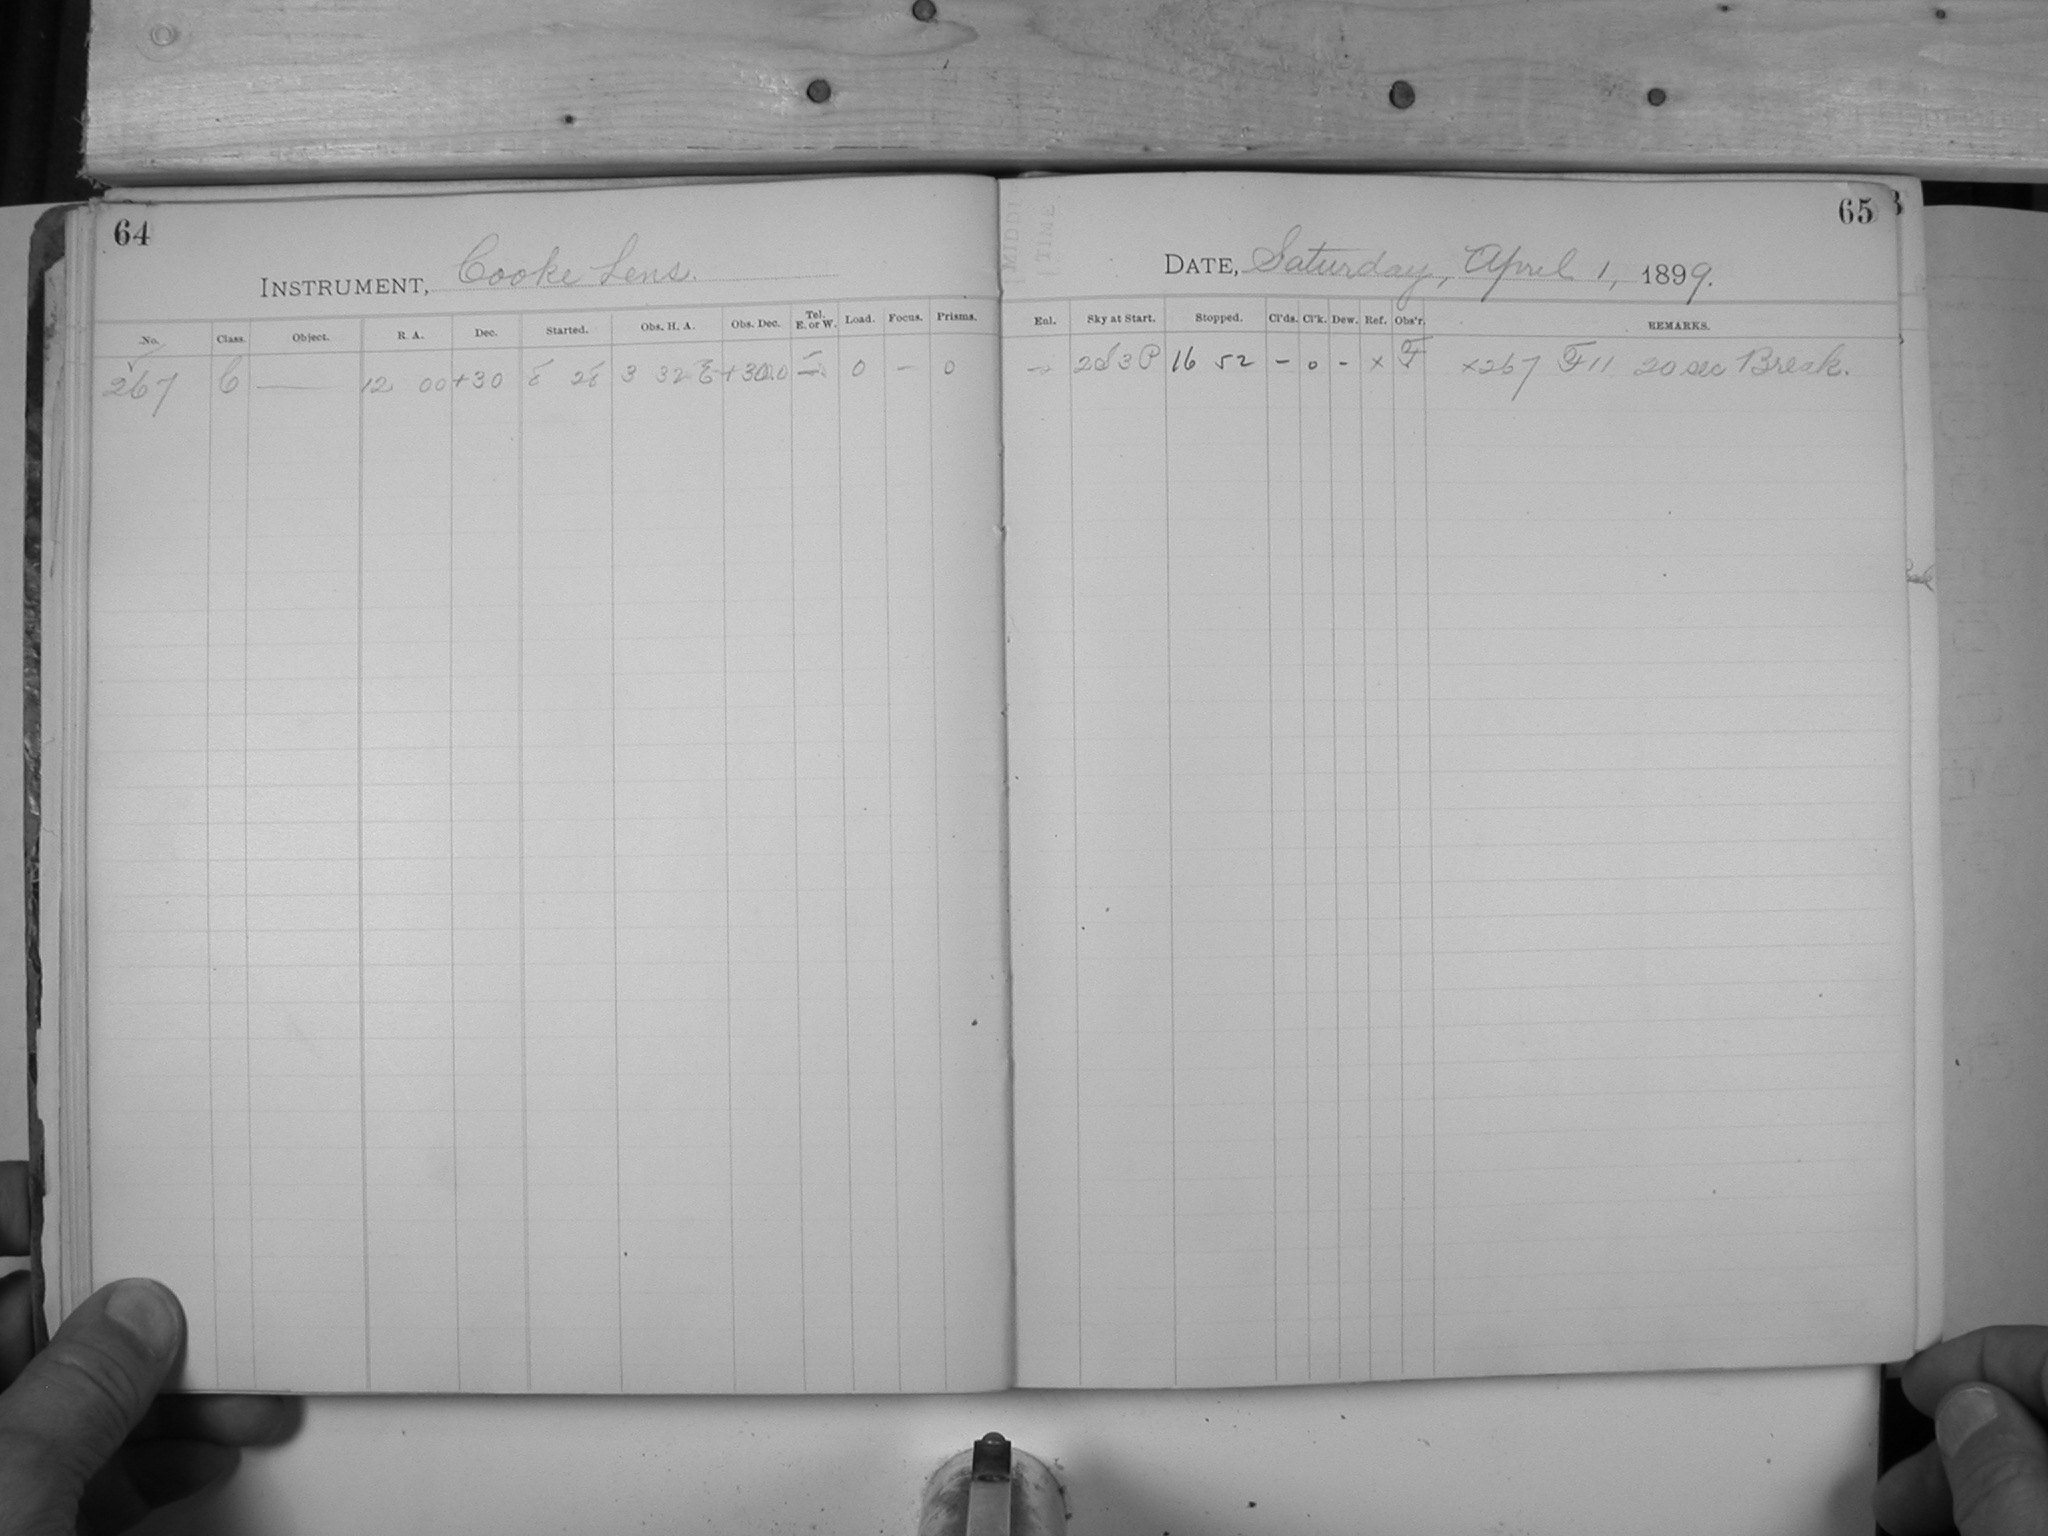 64
INSTRUMENT, Cooke Lens.
No. Class. Object. R. A. Dec. Started. Obs. H. A. Obs. Dec. Tel. E. or W. Load. Focus. Prisms.
267 C — 12 00 +30 3 32 E +30.0 — 0 – 0
65
DATE, Saturday, April 1, 1899.
Enl. Sky at Start. Stopped. Cl'ds. Cl'k. Dew. Ref. Obs'r. REMARKS.
– 2d 3 P 16 52 – 0 – × F ×267 F 11 20 sec Break.
MIDDL
TIME